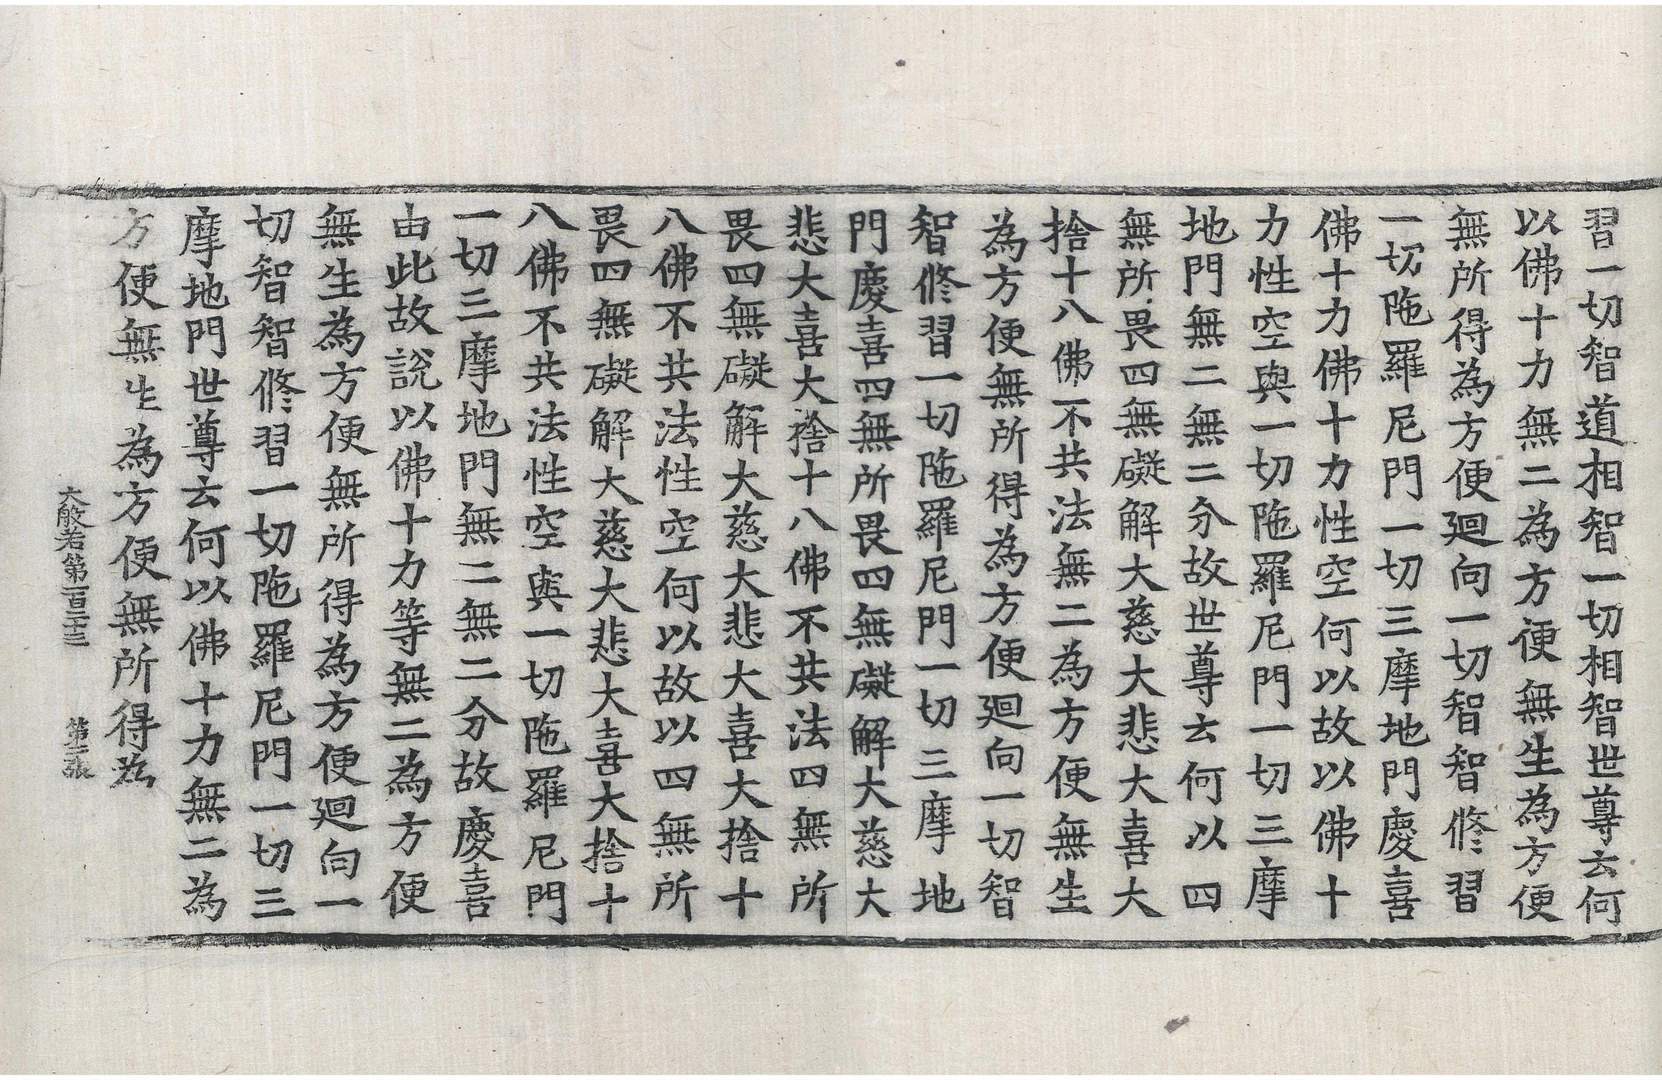 習一切智道相智一切相智世尊云何
以佛十力無二為方便無生為方便
無所得為方便廻向一切智智修習
一切陁羅尼門一切三摩地門慶喜
佛十力佛十力性空何以故以佛十
力性空與一切陁羅尼門一切三摩
地門無二無二分故世尊云何以四
無所畏四無礙解大慈大悲大喜大
捨十八佛不共法無二為方便無生
為方便無所得為方便廻向一切智
智修習一切陁羅尼門一切三摩地
門慶喜四無所畏四無礙解大慈大
悲大喜大捨十八佛不共法四無所
畏四無礙解大慈大悲大喜大捨十
八佛不共法性空何以故以四無所
畏四無礙解大慈大悲大喜大捨十
八佛不共法性空與一切陁羅尼門
一切三摩地門無二無二分故慶喜
由此故說以佛十力等無二為方便
無生為方便無所得為方便廻向一
切智智修習一切陁羅尼門一切三
摩地門世尊云何以佛十力無二為
方便無生為方便無所得為
大般若第一百二十三 第二張